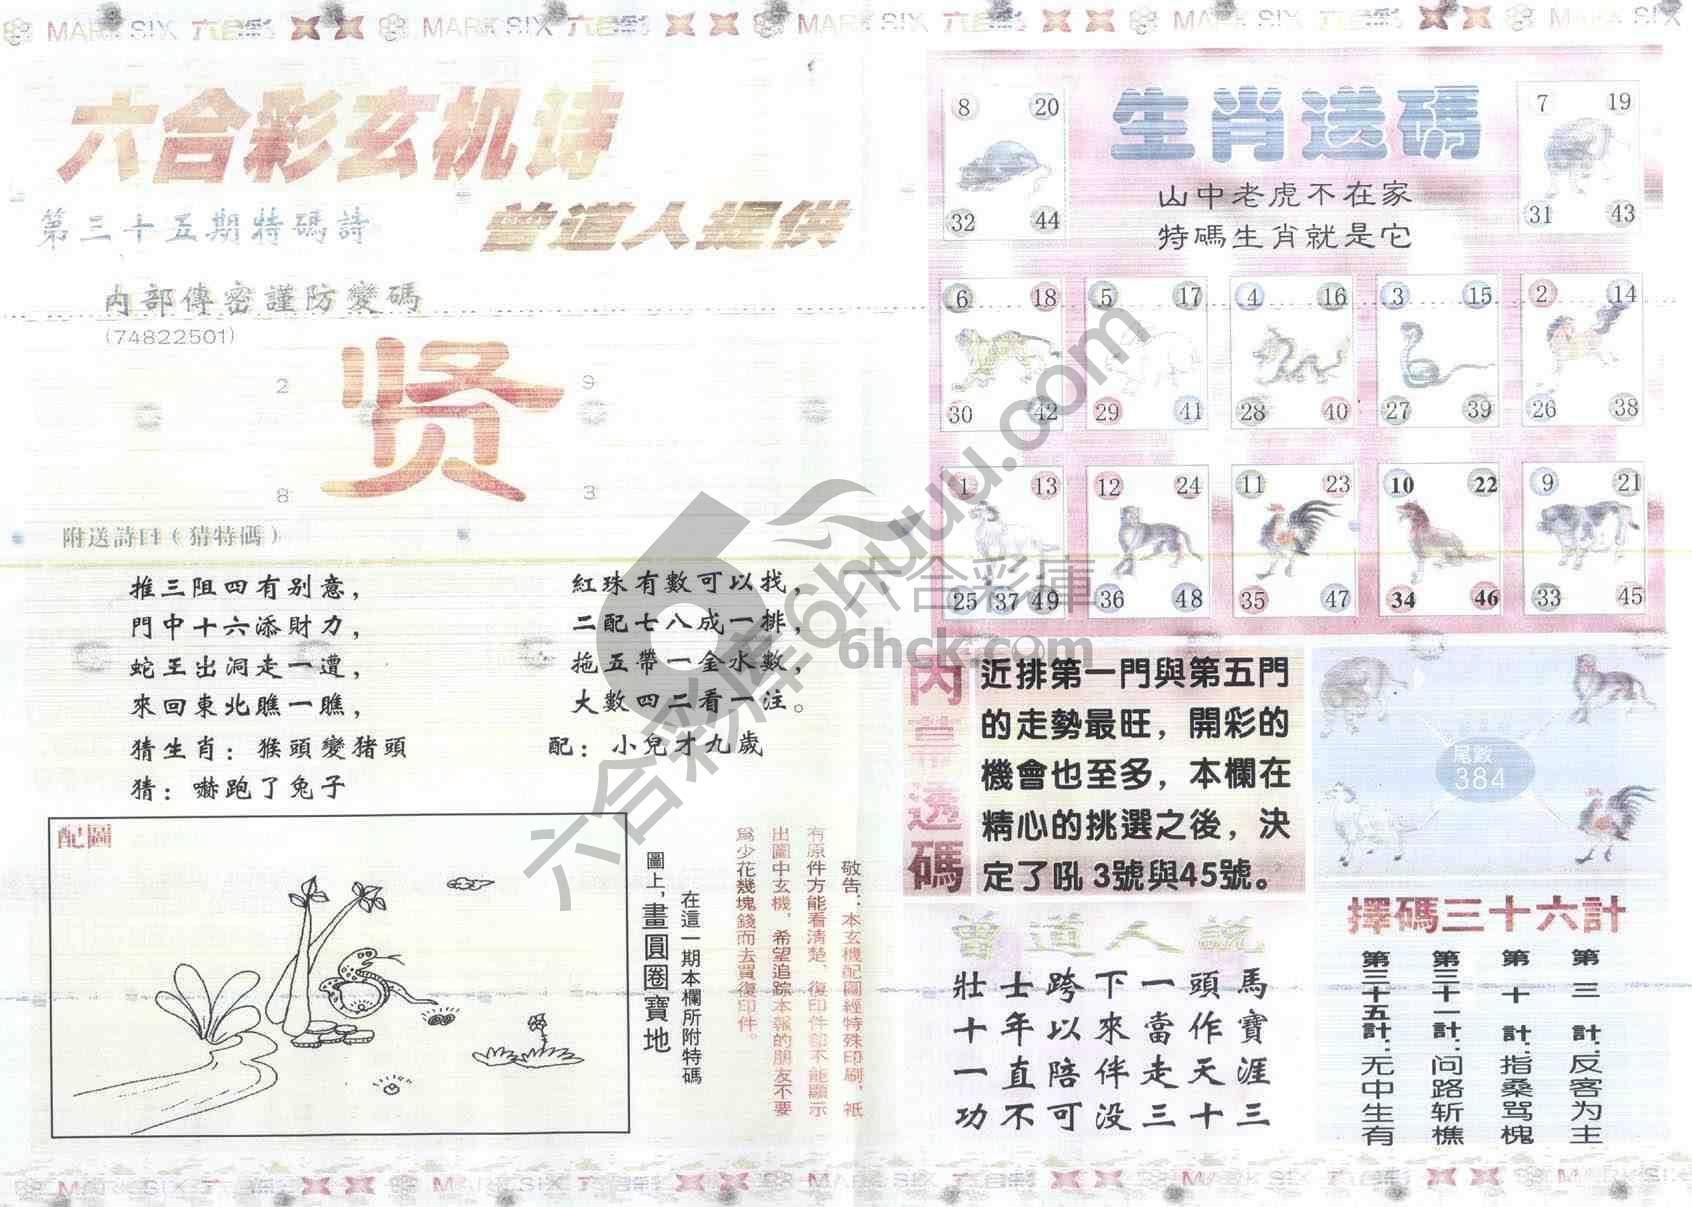 MARK SIX 六合彩 MARK SIX 六合彩 MARK SIX 六合彩 MARK SIX 六合彩
六合彩玄机诗
第三十五期特碼詩
曾道人提供
内部傳密謹防變碼
(74822501)
2 9
贤
8 3
附送詩曰(猜特碼)
推三阻四有别意，
門中十六添財力，
蛇王出洞走一遭，
來回東北瞧一瞧，
猜生肖：猴頭變猪頭
猜：嚇跑了兔子
紅珠有數可以找，
二配七八成一排，
拖五帶一金水數，
大數四二看一注。
配：小兒才九歲
配圖
在這一期本欄所附特碼
圖上，畫圓圈寶地
敬告：本玄機配圖經特殊印刷，祗
有原件方能看清楚、復印件卻不能顯示
出圖中玄機，希望追踪本報的朋友不要
爲少花幾塊錢而去買復印件。
生肖送碼
山中老虎不在家
特碼生肖就是它
8 20
32 44
7 19
31 43
6 18 5 17 4 16 3 15 2 14
30 42 29 41 28 40 27 39 26 38
1 13 12 24 11 23 10 22 9 21
25 37 49 36 48 35 47 34 46 33 45
内幕透碼
近排第一門與第五門
的走勢最旺，開彩的
機會也至多，本欄在
精心的挑選之後，決
定了吼3號與45號。
尾數
384
曾道人説
馬寶涯三
頭作天十
一當走三
下來伴没
跨以陪可
士年直不
壯十一功
擇碼三十六計
第三計：反客为主
第十計：指桑骂槐
第三十一計：问路斩樵
第三十五計：无中生有
六合彩库6huuu.com
六合彩庫
6hck.com
MARK SIX 六合彩 MARK SIX 六合彩 MARK SIX 六合彩 MARK SIX